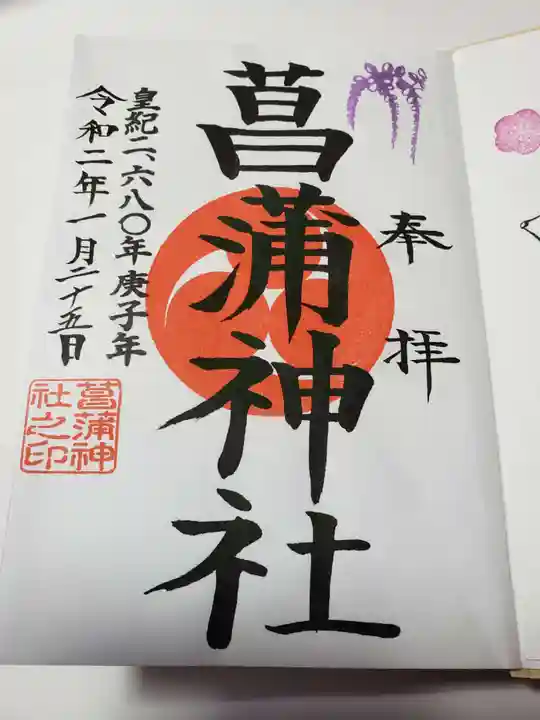 奉拝
菖蒲神社
皇紀二、六八〇年庚子年
令和二年一月二十五日
菖蒲神
社之印